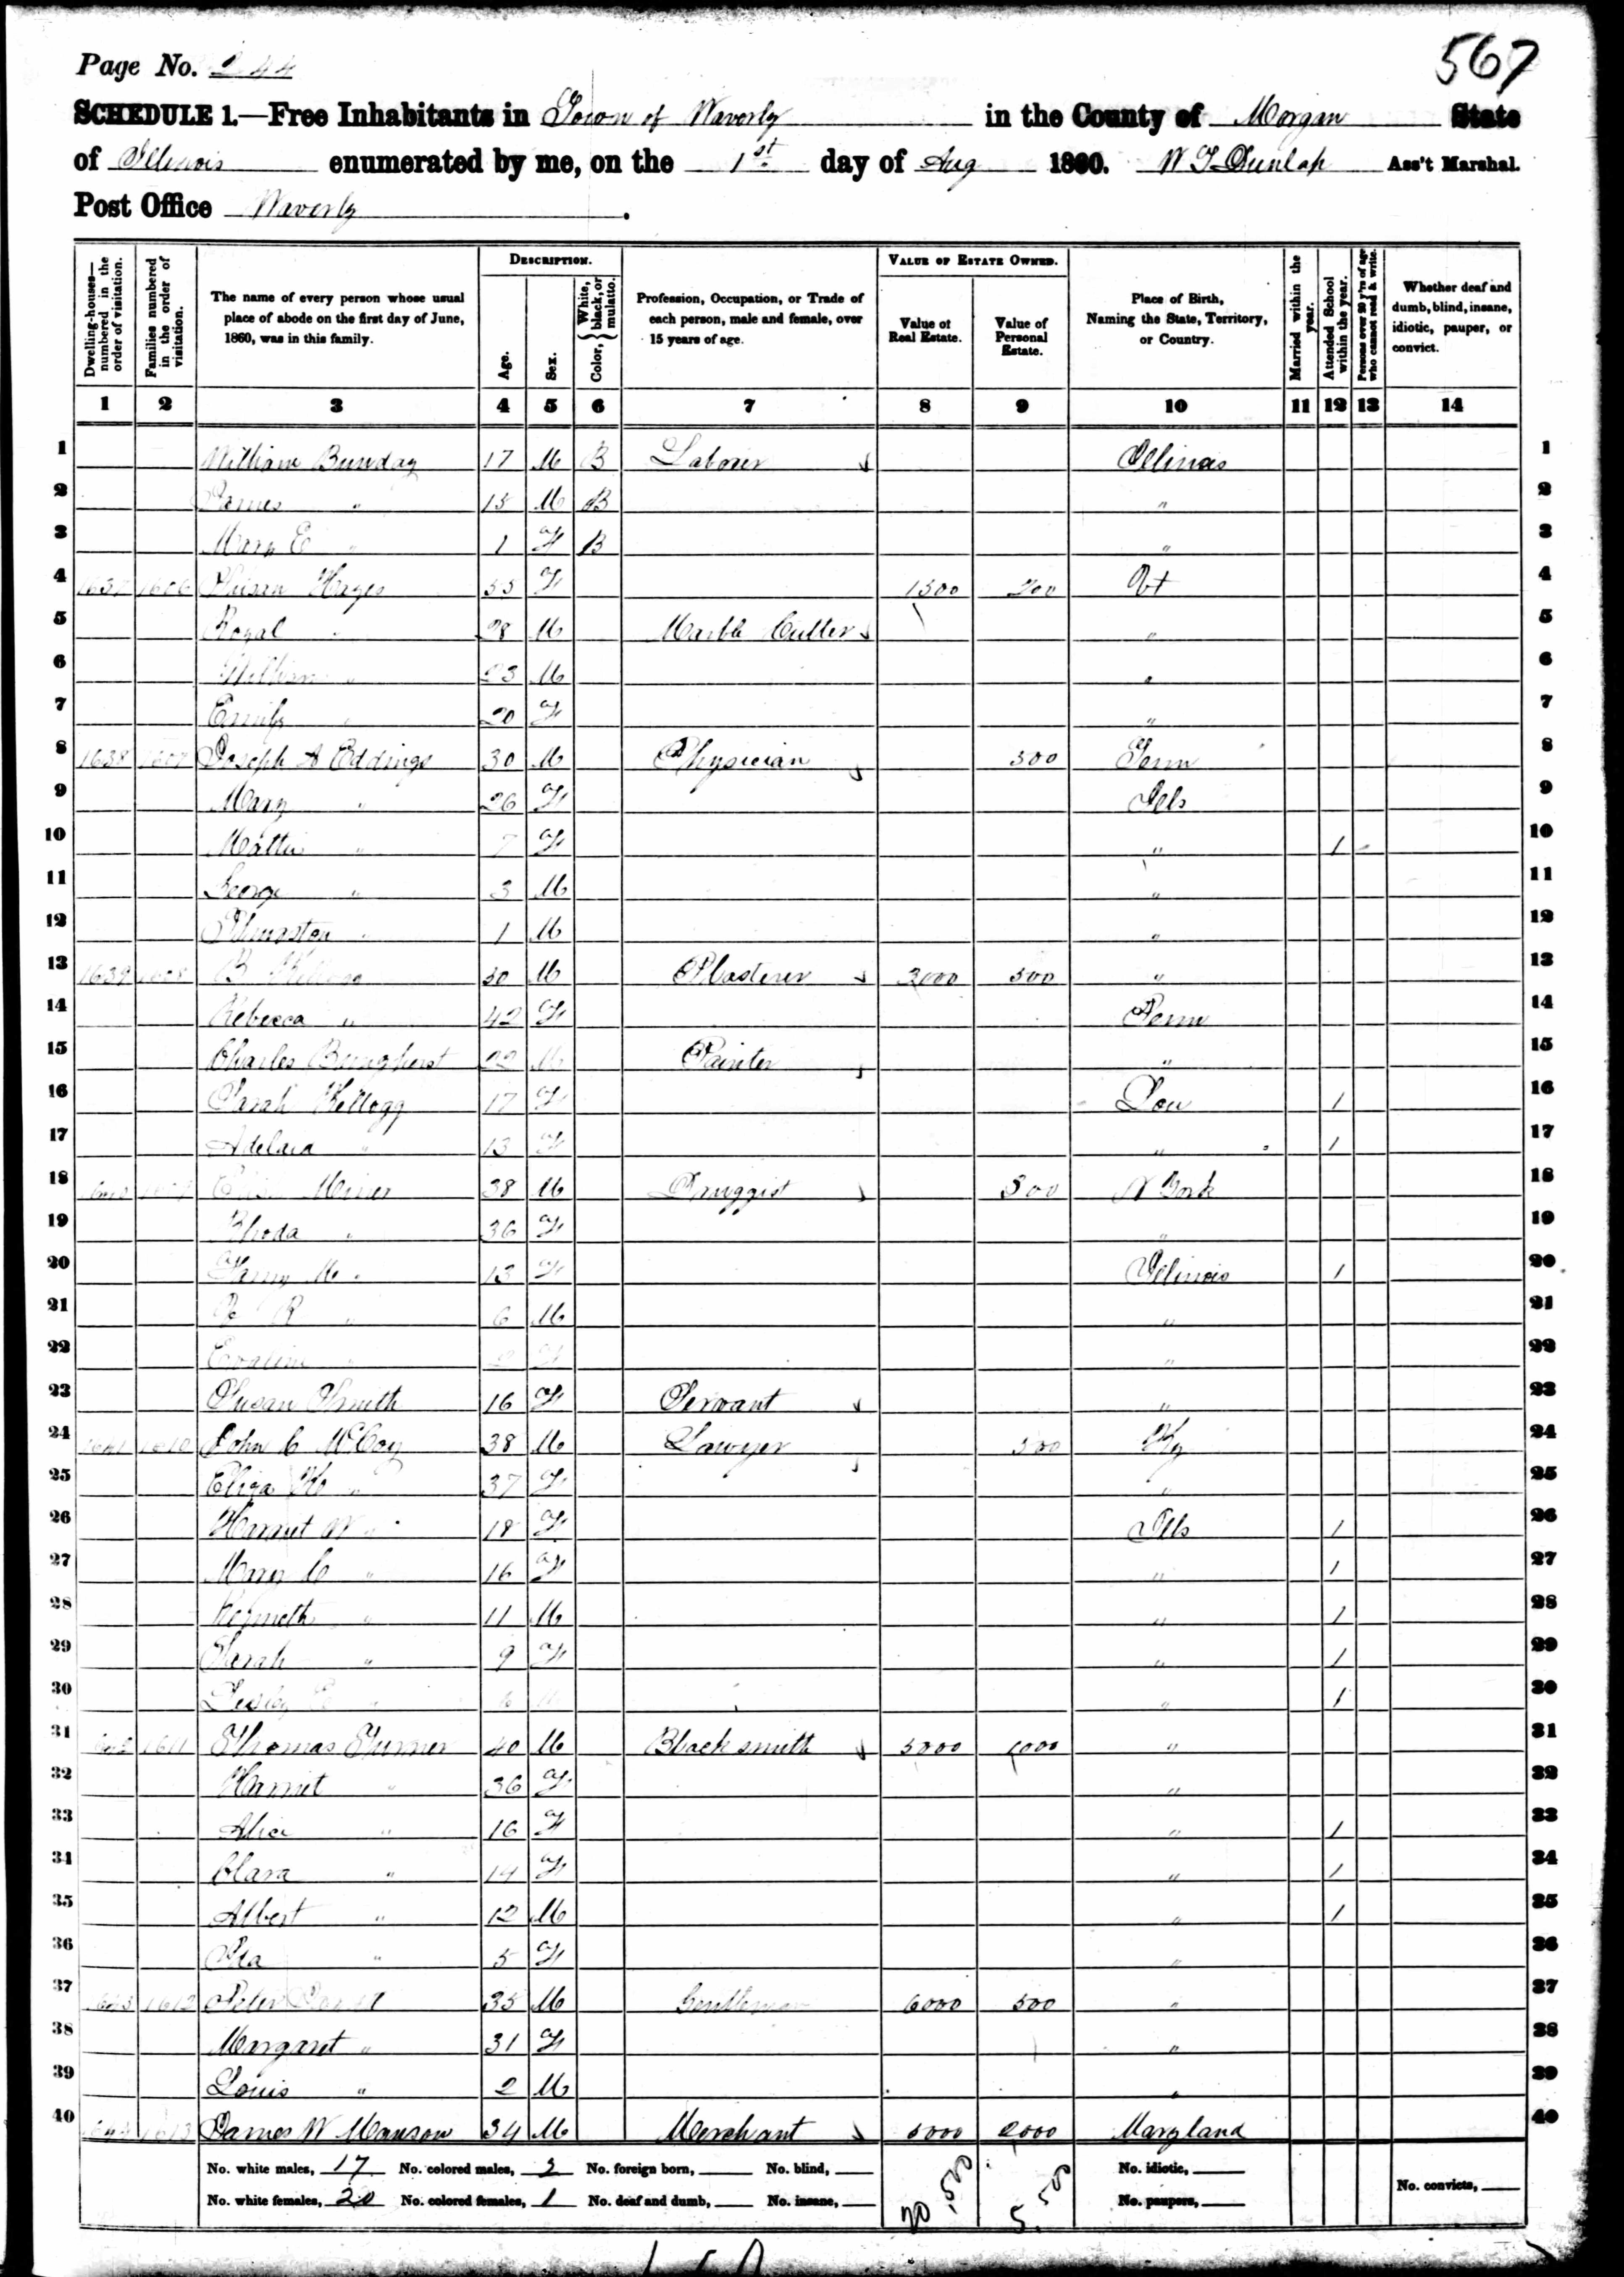 567
Page No. 244
SCHEDULE 1.—Free Inhabitants in Town of Waverly in the County of Morgan State
of Illinois enumerated by me, on the 1st day of Aug 1860. W T Dunlap Ass't Marshal.
Post Office Waverly.
Dwelling-houses—numbered in the order of visitation.
Families numbered in the order of visitation.
The name of every person whose usual place of abode on the first day of June, 1860, was in this family.
DESCRIPTION.
Age.
Sex.
Color, { White, black, or mulatto.
Profession, Occupation, or Trade of each person, male and female, over 15 years of age.
VALUE OF ESTATE OWNED.
Value of Real Estate.
Value of Personal Estate.
Place of Birth, Naming the State, Territory, or Country.
Married within the year.
Attended School within the year.
Persons over 20 y'rs of age who cannot read & write.
Whether deaf and dumb, blind, insane, idiotic, pauper, or convict.
1 2 3 4 5 6 7 8 9 10 11 12 13 14
1 William Bunday 17 M B Laborer Illinois 1
2 James " 15 M B " 2
3 Mary E " 1 F B " 3
4 1637 1606 Susan Hages 55 F 1500 200 Vt 4
5 Royal " 28 M Marble Cutter " 5
6 William " 23 M " 6
7 Emily " 20 F " 7
8 1638 1607 Joseph A Eddings 30 M Physician 300 Tenn 8
9 Mary " 26 F Ills 9
10 Mattie " 7 F " 1 10
11 George " 3 M " 11
12 Thurston " 1 M " 12
13 1639 1608 B Kellogg 50 M Plasterer 3000 500 " 13
14 Rebecca " 42 F Penn 14
15 Charles 22 M Painter " 15
16 Sarah Kellogg 17 F Lou 1 16
17 Adelaid " 13 F " 1 17
18 1609 Miner 38 M Druggist 300 N York 18
19 Rhoda " 36 F " 19
20 Fanny M " 13 F Illinois 1 20
21 R " 6 M " 21
22 Evaline " 2 F " 22
23 Susan Smith 16 F Servant " 23
24 1641 1610 John C McCoy 38 M Lawyer 500 Ky 24
25 Eliza " 37 F " 25
26 Harriet W " 18 F Ills 1 26
27 Mary C " 16 F " 1 27
28 Kenneth " 11 M " 1 28
29 Sarah " 9 F " 1 29
30 Lesley " 6 M " 1 30
31 1642 1611 Thomas Turner 40 M Blacksmith 5000 1000 " 31
32 Harriet " 36 F " 32
33 Alice " 16 F " 1 33
34 Clara " 14 F " 1 34
35 Albert " 12 M " 1 35
36 Ida " 5 F " 36
37 1643 1612 Peter 35 M Gentleman 6000 500 " 37
38 Margaret " 31 F " 38
39 Louis " 2 M " 39
40 1644 1613 James W Manson 34 M Merchant 5000 2000 Maryland 40
No. white males, 17 No. colored males, 2 No. foreign born, No. blind, 20,500 5,500 No. idiotic,
No. white females, 20 No. colored females, 1 No. deaf and dumb, No. insane, No. paupers, No. convicts,